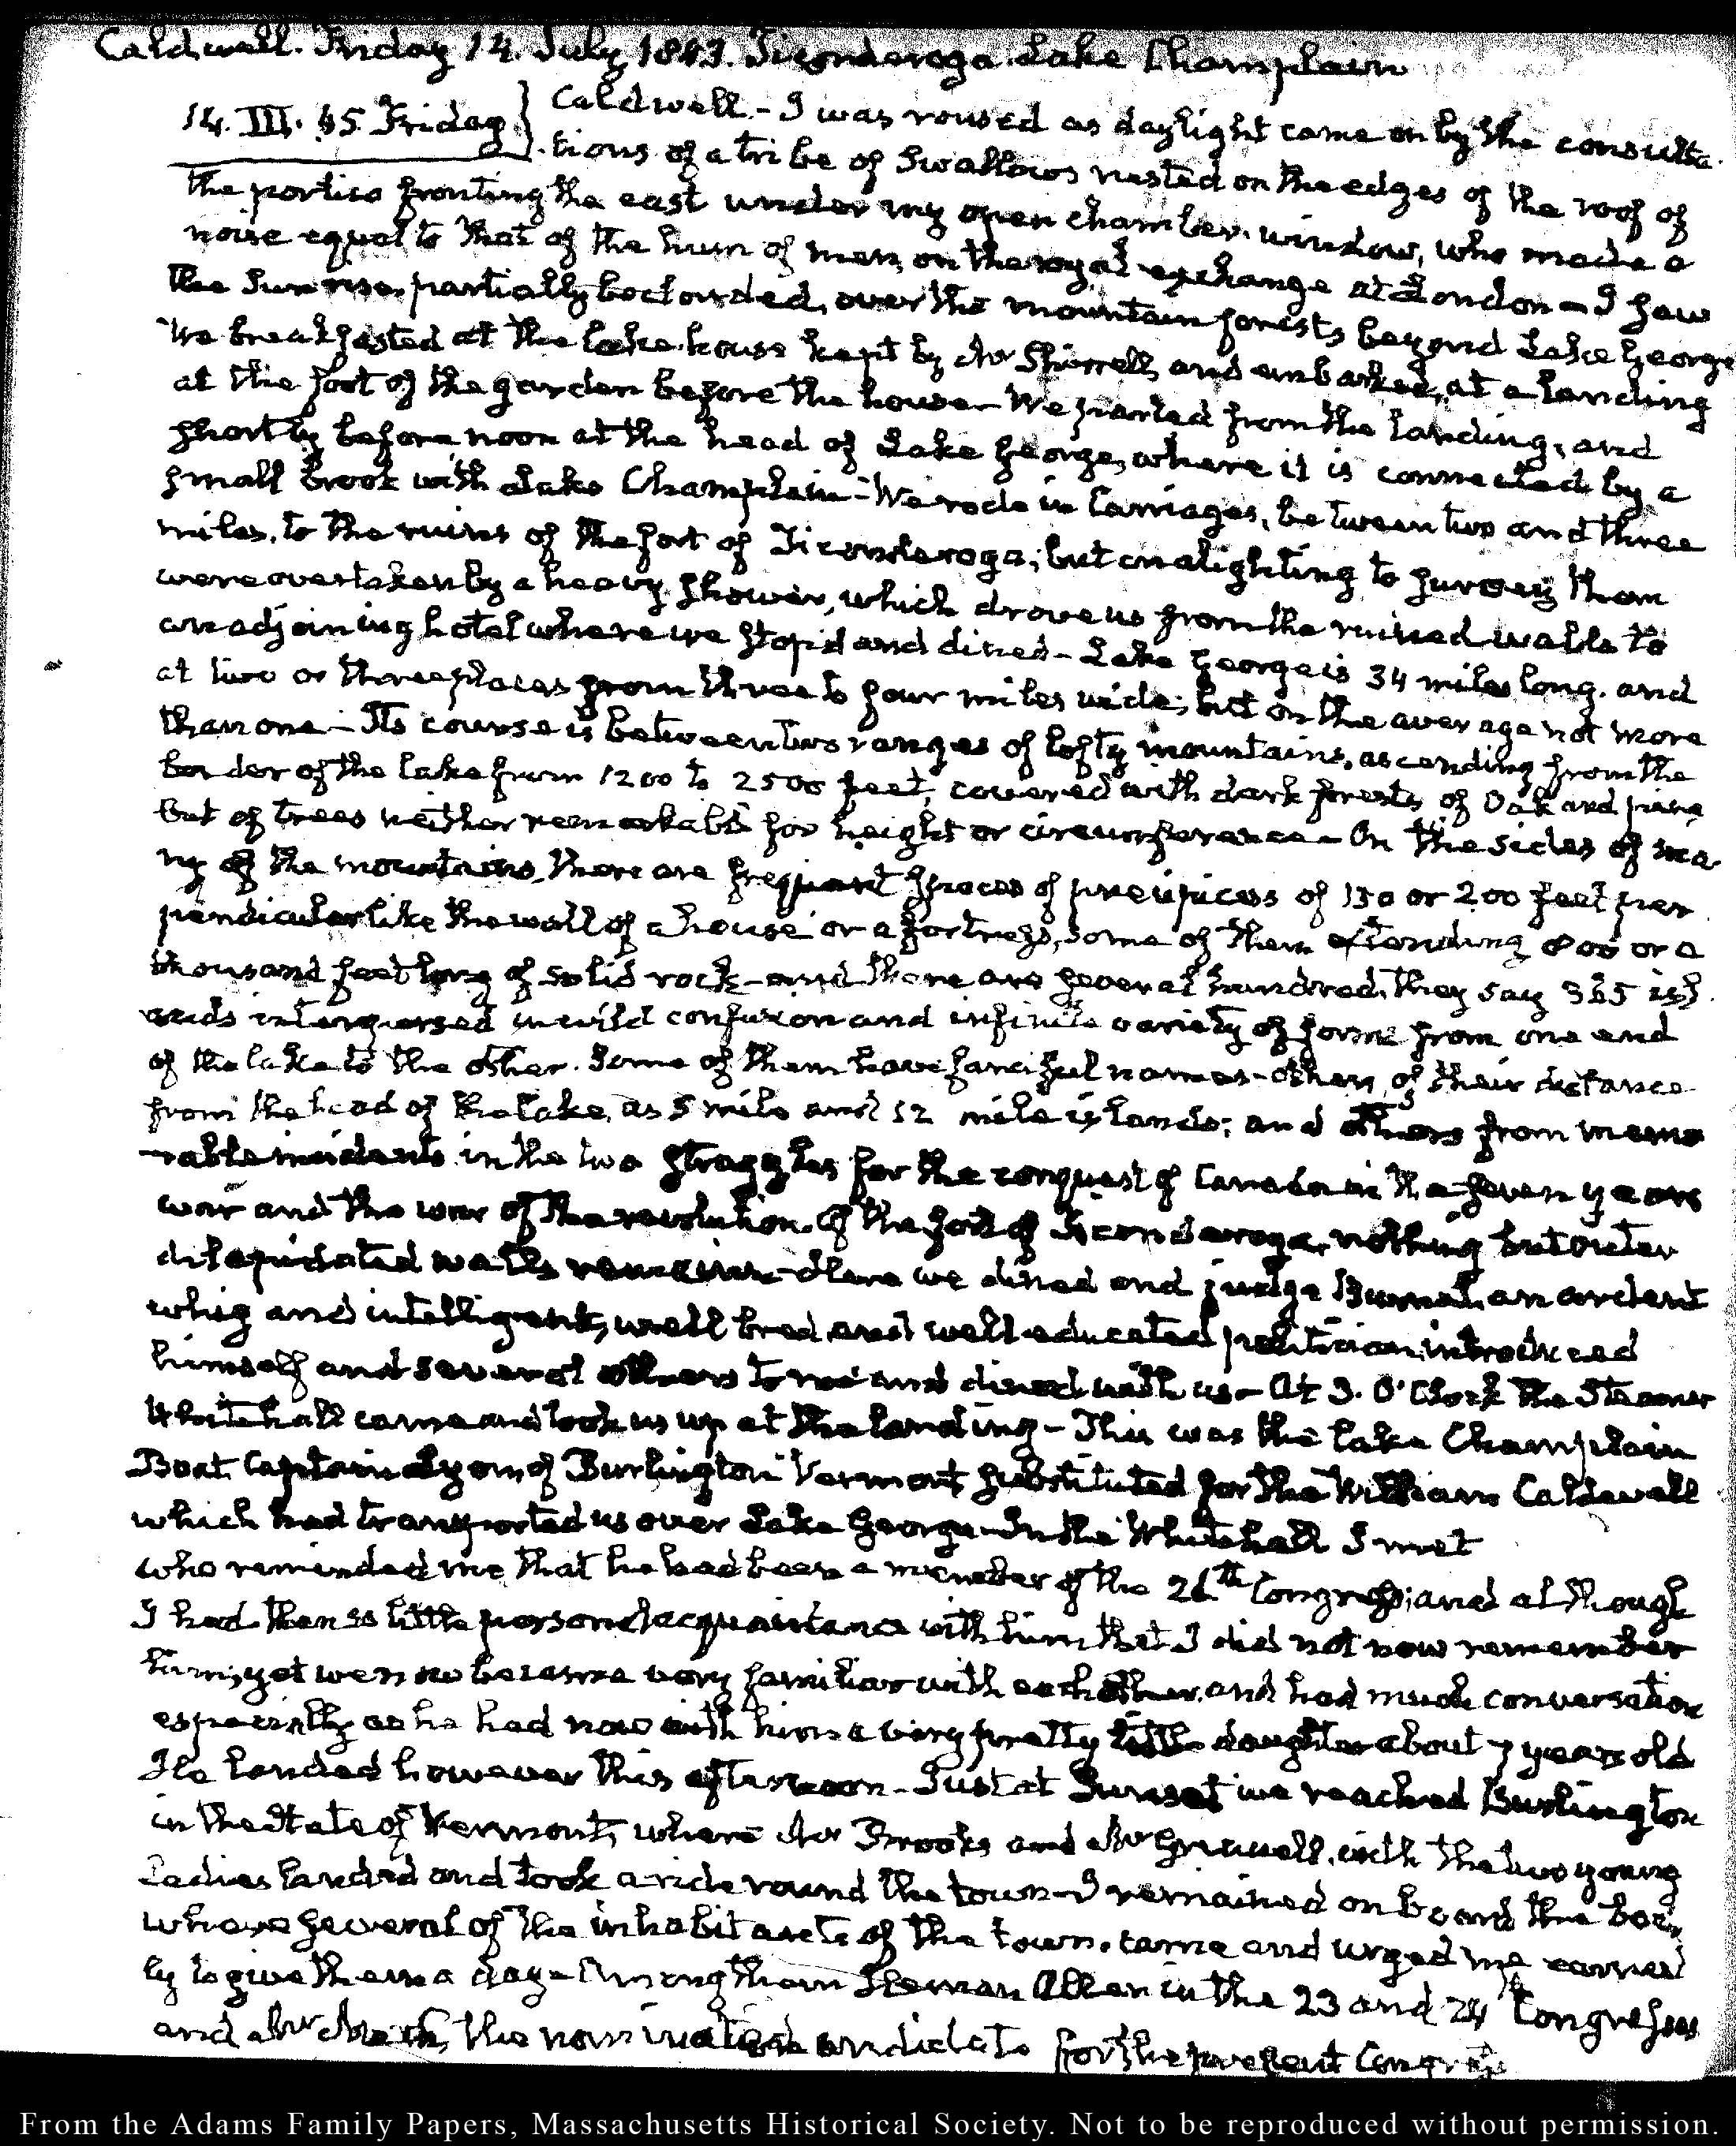 Caldwell. Friday 14. July 1843. Ticonderoga. Lake Champlain
14. III. 45. Friday} Caldwell - I was roused as daylight came on by the consulta-
tions of a tribe of Swallows nested on the edges of the roof of
the portico fronting the east under my open chamber window, who made a
noise equal to that of the hum of men, on the royal exchange at London - I saw
the Sun rise, partially beclouded, over the mountain forests beyond Lake George
We breakfasted at the lake house kept by Mr Sherrell, and embarked, at a landing
at the foot of the garden before the house - We parted from the landing, and
shortly before noon at the head of Lake George, where it is connected by a
small brook with Lake Champlain - We rode in Carriages, between two and three
miles, to the ruins of the fort of Ticonderoga; but on alighting to survey them
were overtaken by a heavy shower, which drove us from the ruined walls to
an adjoining hotel where we stop'd and dined - Lake George is 34 miles long. and
at two or three places from three to four miles wide; but on the average not more
than one - Its course is between two ranges of lofty mountains, ascending from the
border of the lake from 1200 to 2500 feet, covered with dark forests of Oak and pine
but of trees neither remarkable for height or circumference - On the sides of ma-
ny of the mountains, there are frequent spaces of precipices of 150 or 200 feet per-
pendicular like the wall of a house or a fortress, some of them extending 800 or a
thousand feet long of solid rock - and there are several hundred, they say 365 isl-
ands interspersed in wild confusion and infinite variety of form from one end
of the lake to the other. Some of them have fanciful names - others, of their distance
from the head of the lake, as 5 mile and 12 mile islands; and others from memo-
rable incidents in the two struggles for the conquest of Canada in the seven years
war and the war of the revolution. Of the fort of Ticonderoga, nothing but outer
dilapidated walls remain - Here we dined and judge Burnet, an ardent
whig and intelligent, well bred and well educated politician, introduced
himself and several others to me and dined with us - At 3. O'Clock the Steamer
Whitehall came and took us up at the landing - This was the lake Champlain
Boat, Captain Lyon, of Burlington Vermont substituted for the William Caldwell
which had transported us over Lake George - In the Whitehall I met
who reminded me that he had been a member of the 26th Congress; and although
I had then so little personal acquaintance with him that I did not now remember
him, yet we now became very familiar with each other, and had much conversation
especially as he had now with him a very pretty little daughter about 7 years old
He landed however this afternoon - Just at Sunset we reached Burlington
in the State of Vermont, where Mr Brooks and Mr Grinnell, with the two young
Ladies landed and took a ride round the town - I remained on board the boat,
where several of the inhabitants of the town. came and urged me earnest-
ly to give them a day - Among them Heman Allen in the 23 and 24th Congresses
and Mr the nominated candidate for the present Congress